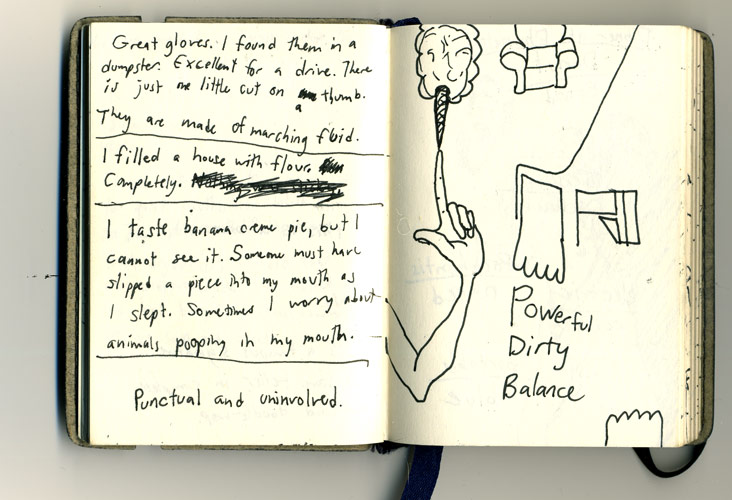 Great gloves. I found them in a
dumpster. Excellent for a drive. There
is just one little cut on a thumb.
They are made of marching fluid.
I filled a house with flour.
Completely.
I taste banana creme pie, but I
cannot see it. Someone must have
slipped a piece into my mouth as
I slept. Sometimes I worry about
animals pooping in my mouth.
Punctual and uninvolved.
Powerful
Dirty
Balance